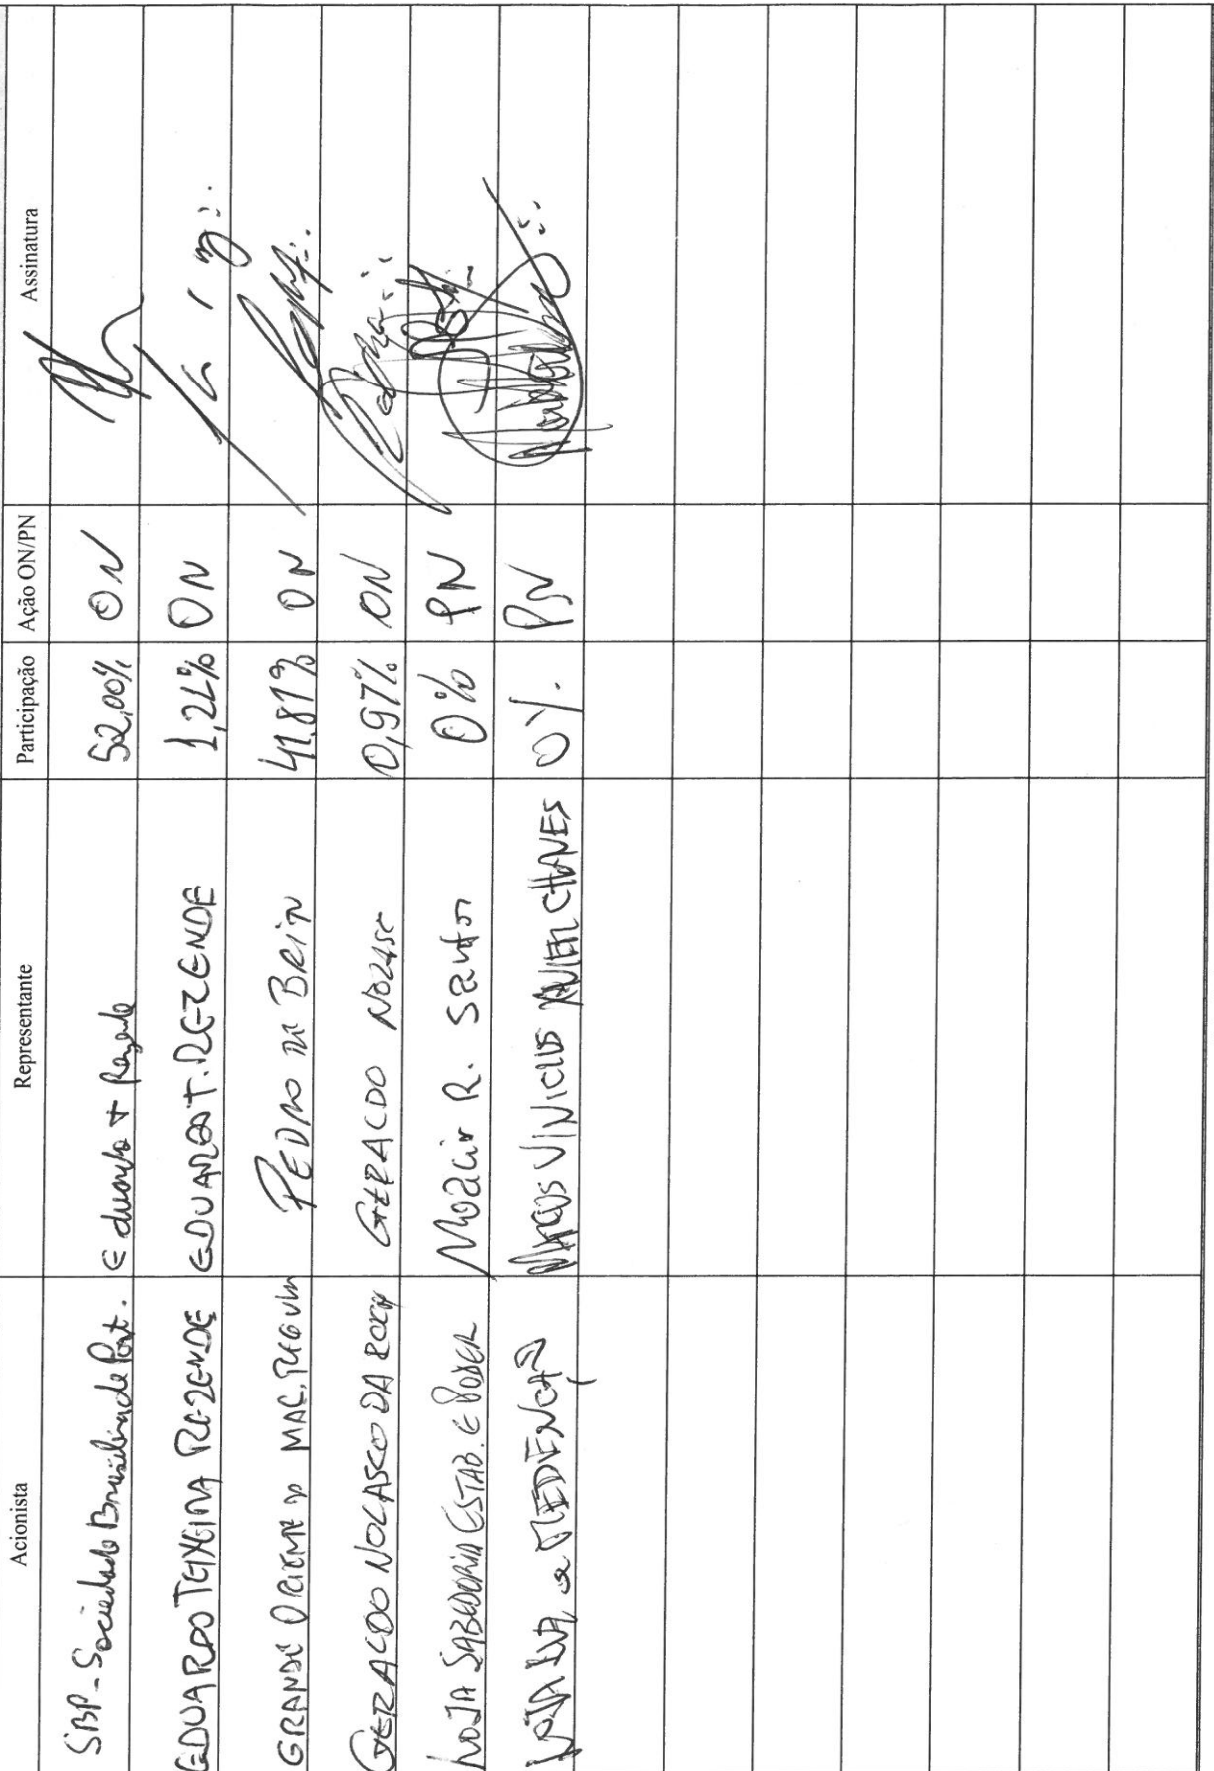 Acionista Representante Participação Ação ON/PN Assinatura
SBP - Sociedade Brasileira de Part. Eduardo T Rezende 52,00% ON
EDUARDO TEIXEIRA REZENDE EDUARDO T. REZENDE 1,22% ON
GRANDE ORIENTE DO MAC. PEDRO DE BRITO 41,81% ON
GERALDO NOLASCO DA ROCHA GERALDO NOLASC 0,97% ON
LOJA SABEDORIA ESTAB. E PODER Moacir R. Santos 0% PN
LOJA MARCOS VINICIUS XAVIER CHAVES 0% PN